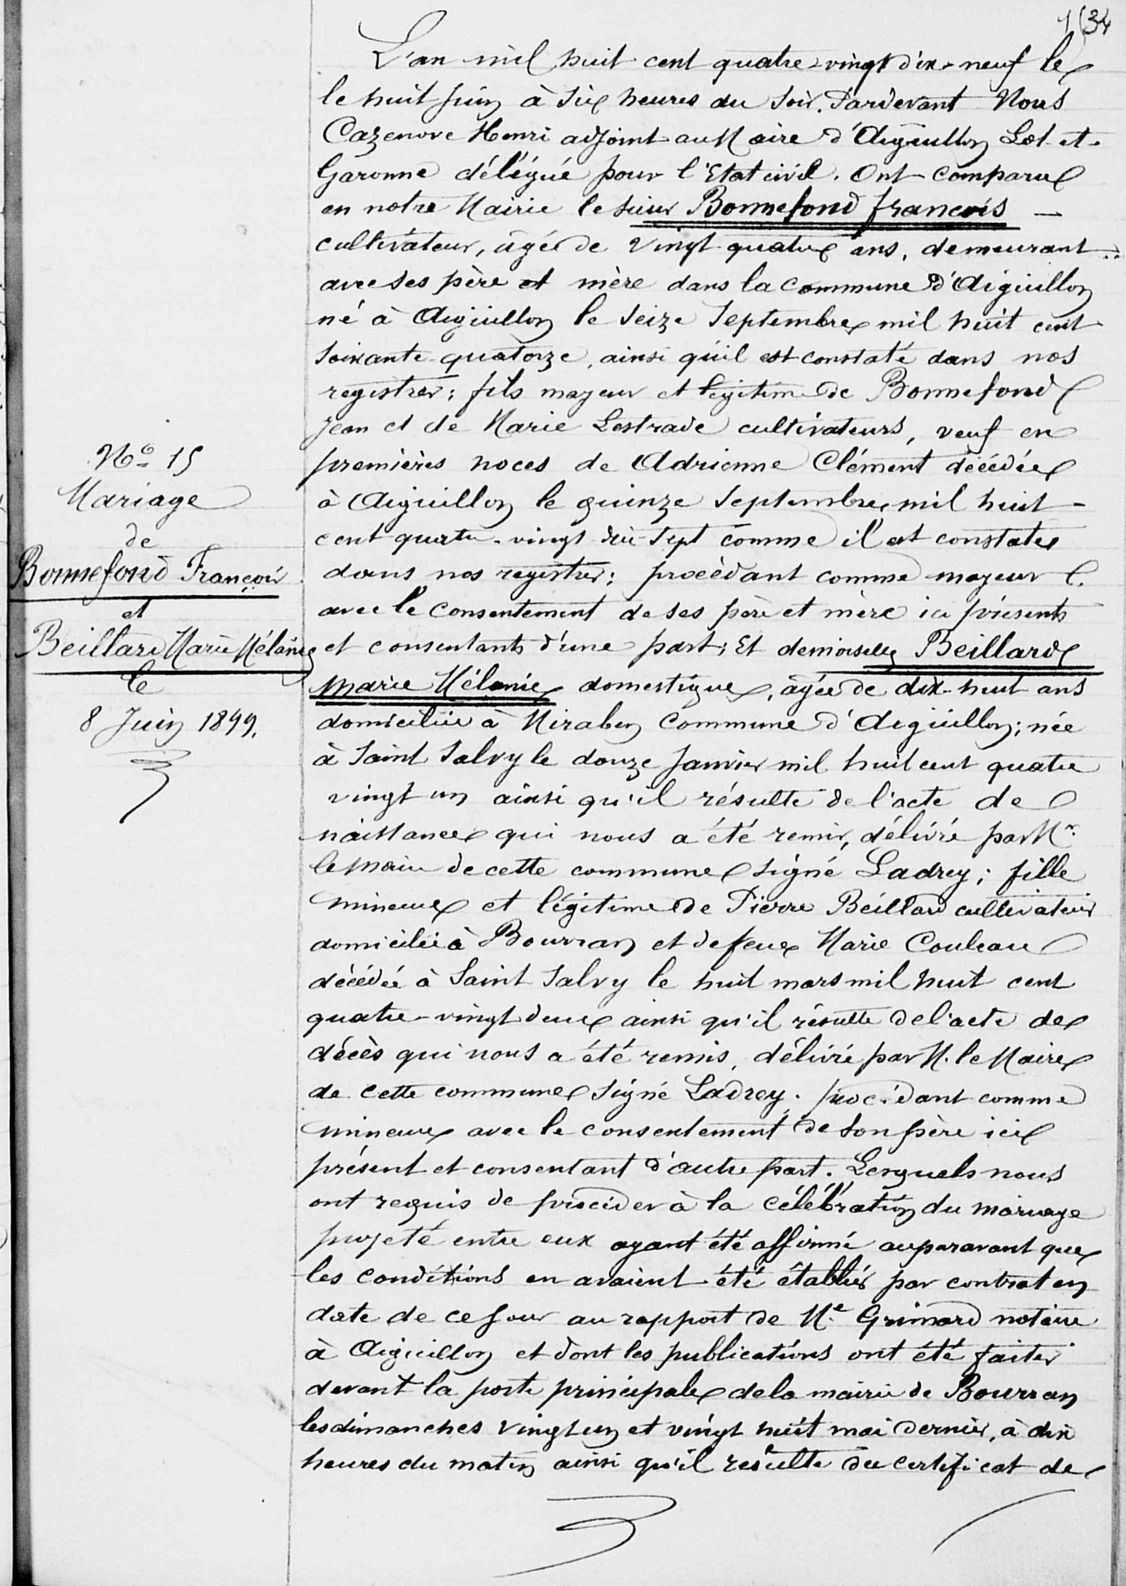 134
L'an mil huit cent quatre-vingt dix-neuf le
le huit juin à six heures du soir. Pardevant Nous
Cazenove Henri adjoint au Maire d'Aiguillon Lot-et-
Garonne délégué pour l'Etat civil. Ont comparu
en notre Mairie le sieur Bonnefond françois —
cultivateur, âgé de vingt quatre ans, demeurant
avec ses père et mère dans la commune d'Aiguillon
né à Aiguillon le seize septembre mil huit cent
soixante-quatorze, ainsi qu'il est constaté dans nos
registres; fils majeur et légitime de Bonnefond
Jean et de Marie Lestrade cultivateurs, veuf en
premières noces de Adrienne Clément décédée
à Aiguillon le quinze septembre mil huit-
cent quatre-vingt dix sept comme il est constaté
dans nos registres; procédant comme majeur
avec le consentement de ses père et mère ici présents
et consentants d'une part; Et demoiselle Beillard
Marie Mélanie domestique, âgée de dix-huit ans
domiciliée à Mirabeu commune d'Aiguillon; née
à Saint Salvy le douze Janvier mil huit cent quatre
vingt un ainsi qu'il résulte de l'acte de
naissance qui nous a été remis, délivré par Mr.
le maire de cette commune signé Ladrey; fille
mineure et légitime de Pierre Beillard cultivateur
domicilié à Bourran et de feue Marie Couleau
décédée à Saint Salvy le huit mars mil huit cent
quatre-vingt deux ainsi qu'il résulte de l'acte de
décès qui nous a été remis, délivré par M. le Maire
de cette commune signé Ladrey. procédant comme
mineure avec le consentement de son père ici
présent et consentant d'autre part. Lesquels nous
ont requis de procéder à la célébration du mariage
projeté entre eux ayant été affirmé auparavant que
les conditions en avaient été établies par contrat en
date de ce jour au rapport de Me Grimard notaire
à Aiguillon et dont les publications ont été faites
devant la porte principale de la mairie de Bourran
les dimanches vingt un et vingt huit mai dernier, à dix
heures du matin ainsi qu'il résulte du certificat de
No 15
Mariage
de
Bonnefond François
et
Beillard Marie Mélanie
le
8 Juin 1899.